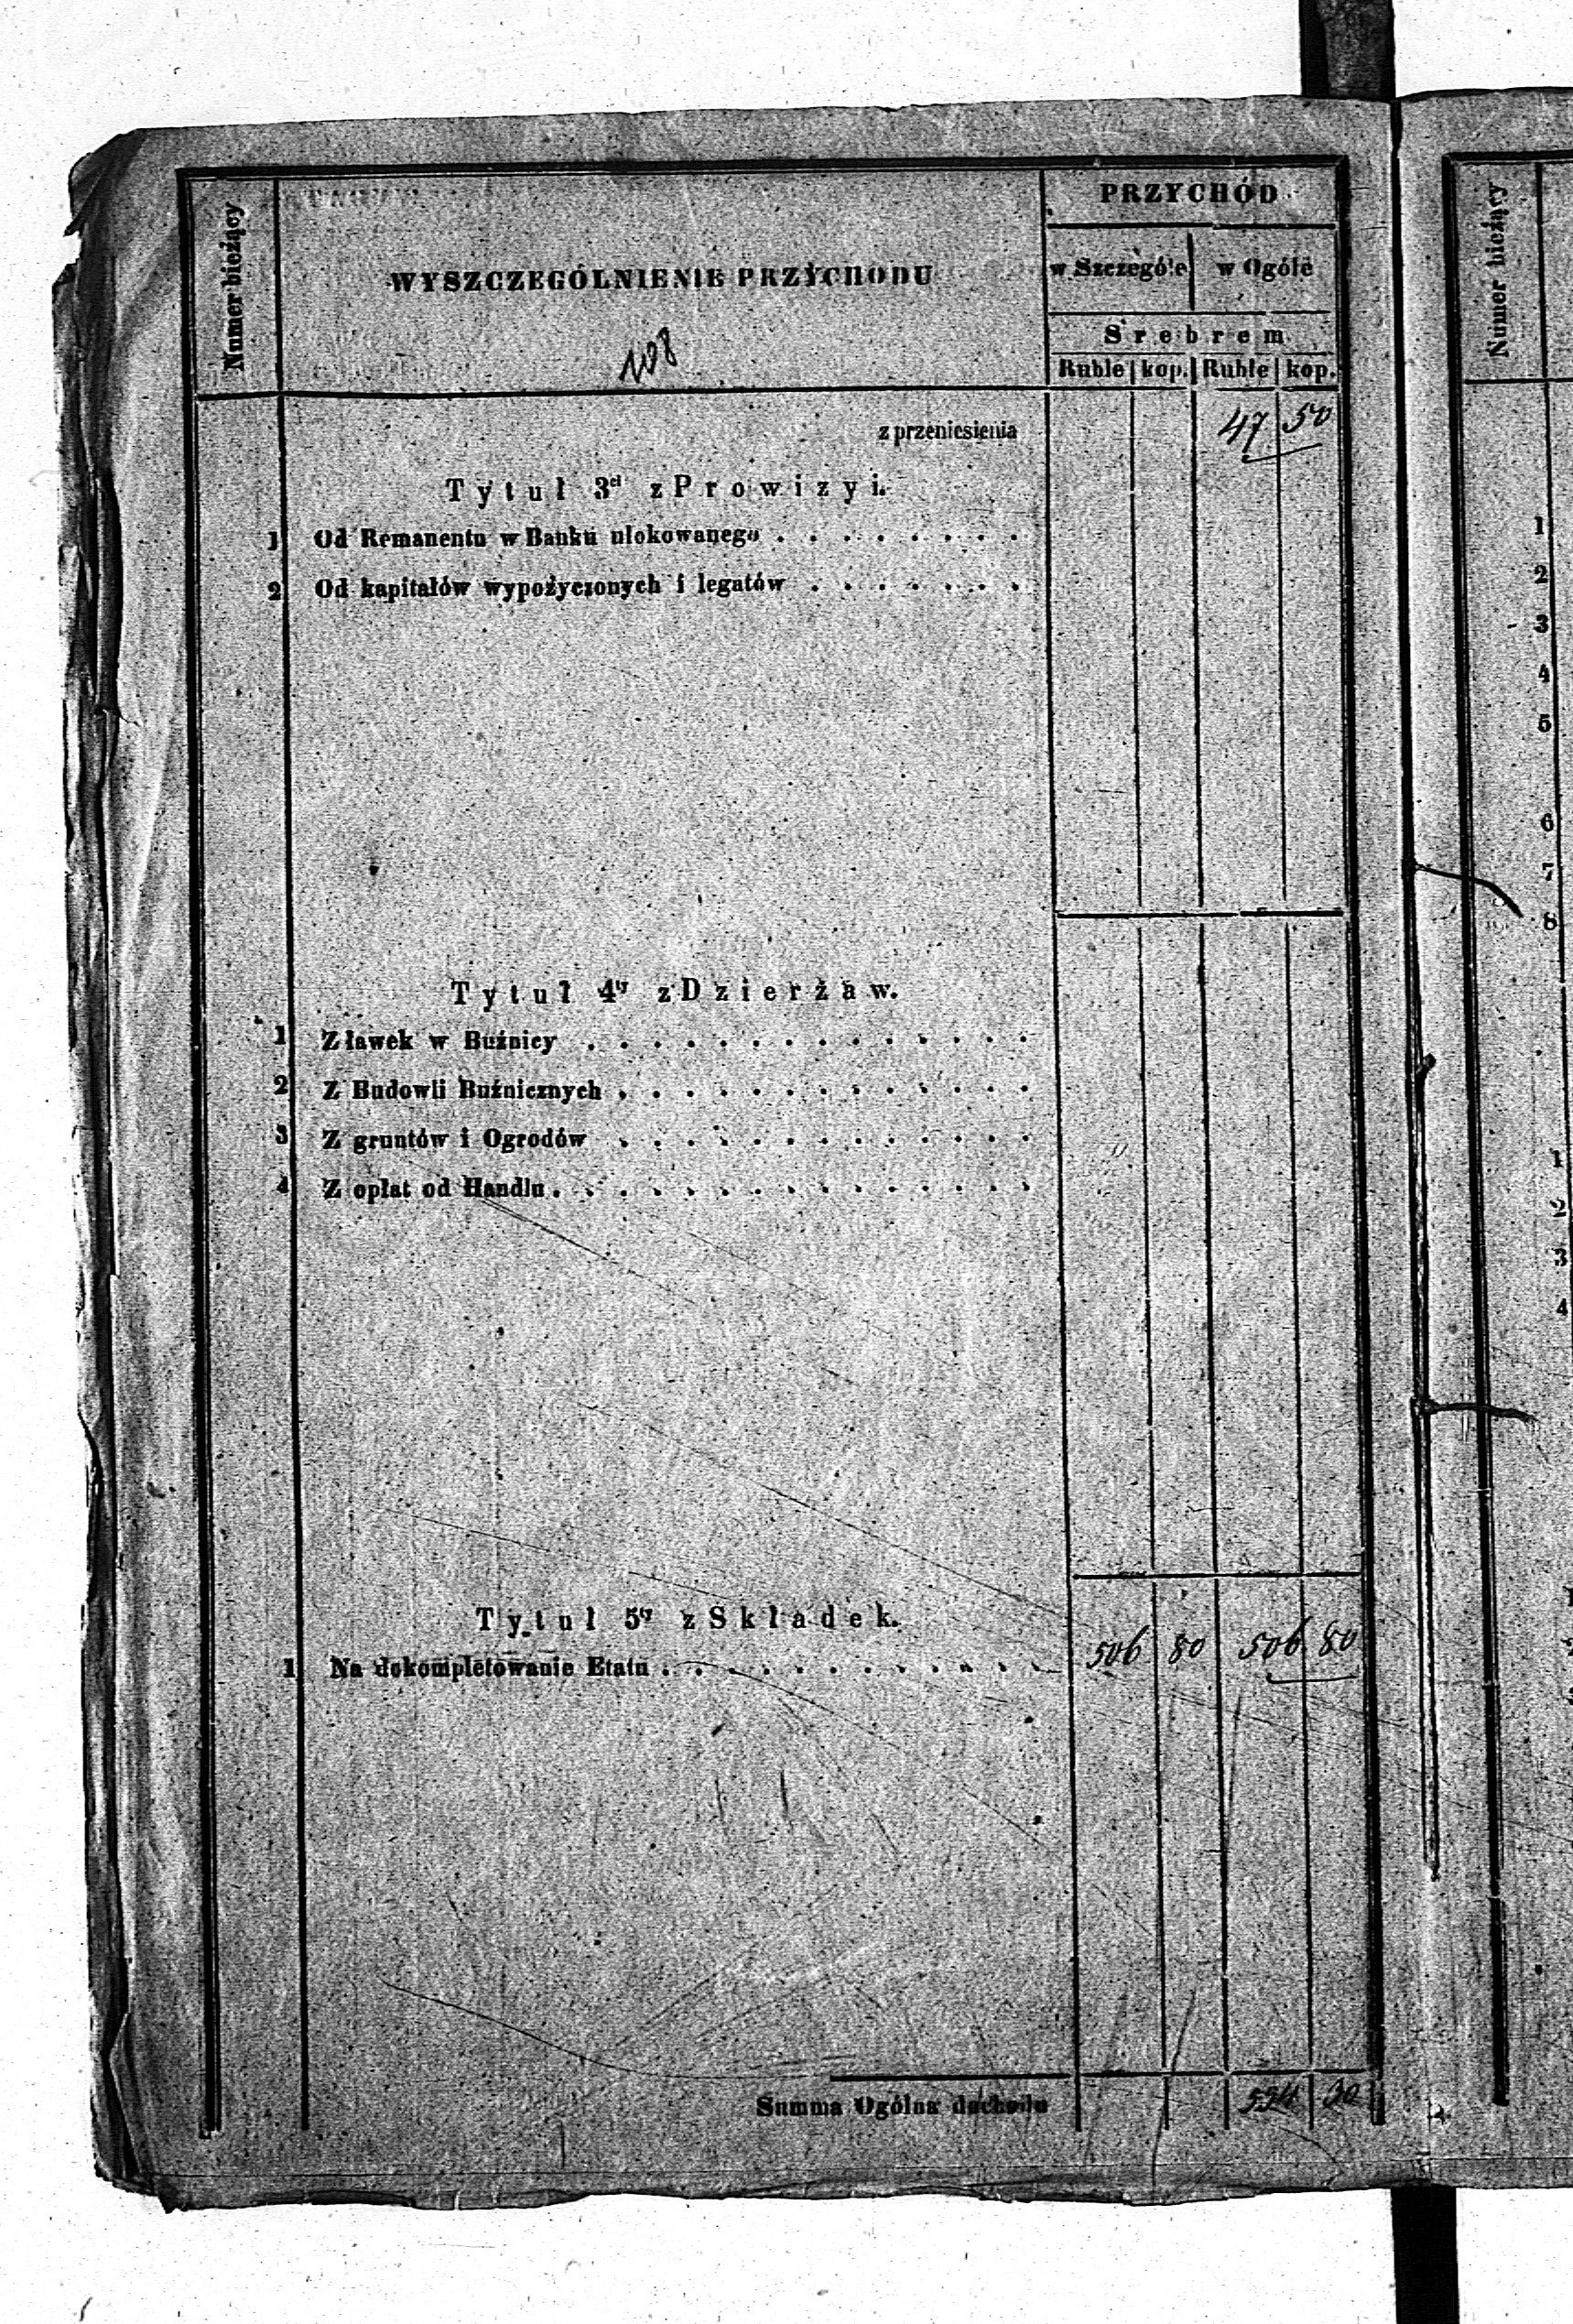 Numer bieżący
WYSZCZEGÓLNIENIE PRZYCHODU
108
PRZYCHÓD
w Szczególe w Ogóle
Srebrem
Ruble kop. Ruble kop.
z przeniesienia 47 50
Tytuł 3ci z Prowizyi.
1 Od Remanentu w Banku ulokowanego . . . . . . . .
2 Od kapitałów wypożyczonych i legatów . . . . . . .
Tytuł 4ty z Dzierżaw.
1 Z ławek w Buźnicy . . . . . . . . . . . . . .
2 Z Budowli Buźnicznych . . . . . . . . . . . . .
3 Z gruntów i Ogrodów . . . . . . . . . . . . .
4 Z opłat od Handlu . . . . . . . . . . . . . . .
Tytuł 5ty z Składek.
1 Na dokompletowanie Etatu . . . . . . . . . . . . 506 80 506 80
Summa Ogólna dochodu 30
Numer bieżący
1
2
3
4
5
6
7
8
1
2
3
4